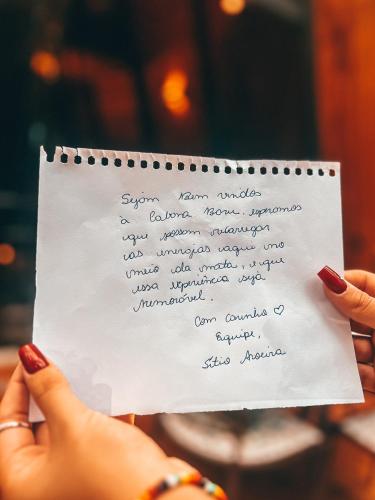 Sejam Bem vindos
à Cabana Bowe. esperamos
que possam recarregar
as energias aqui no
meio da mata, e que
essa experiência seja
Memorável.
Com Carinho ♡
Equipe,
Sítio Aroeira